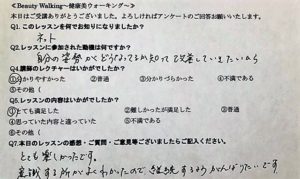 ≪Beauty Walking～健康美ウォーキング～≫
本日はご受講ありがとうございました。よろしければアンケートのご回答お願いいたします。
Q1.このレッスンを何でお知りになりましたか？
ネット
Q2.レッスンに参加された動機は何ですか？
自分の姿勢がどうなっているか知って改善していきたいから
Q4.講師のレクチャーはいかがでしたか？
①分かりやすかった ②普通 ③分かりづらかった ④不満である
⑤その他（
Q5.レッスンの内容はいかがでしたか？
①とても満足した ②難しかったが満足した ③普通
④思っていた内容と違っていた ⑤不満である
⑥その他（
Q7.本日のレッスンの感想・ご質問・ご意見等ございましたらご記入ください。
とても楽しかったです。
意識する所がよくわかったので継続するようがんばりたいです